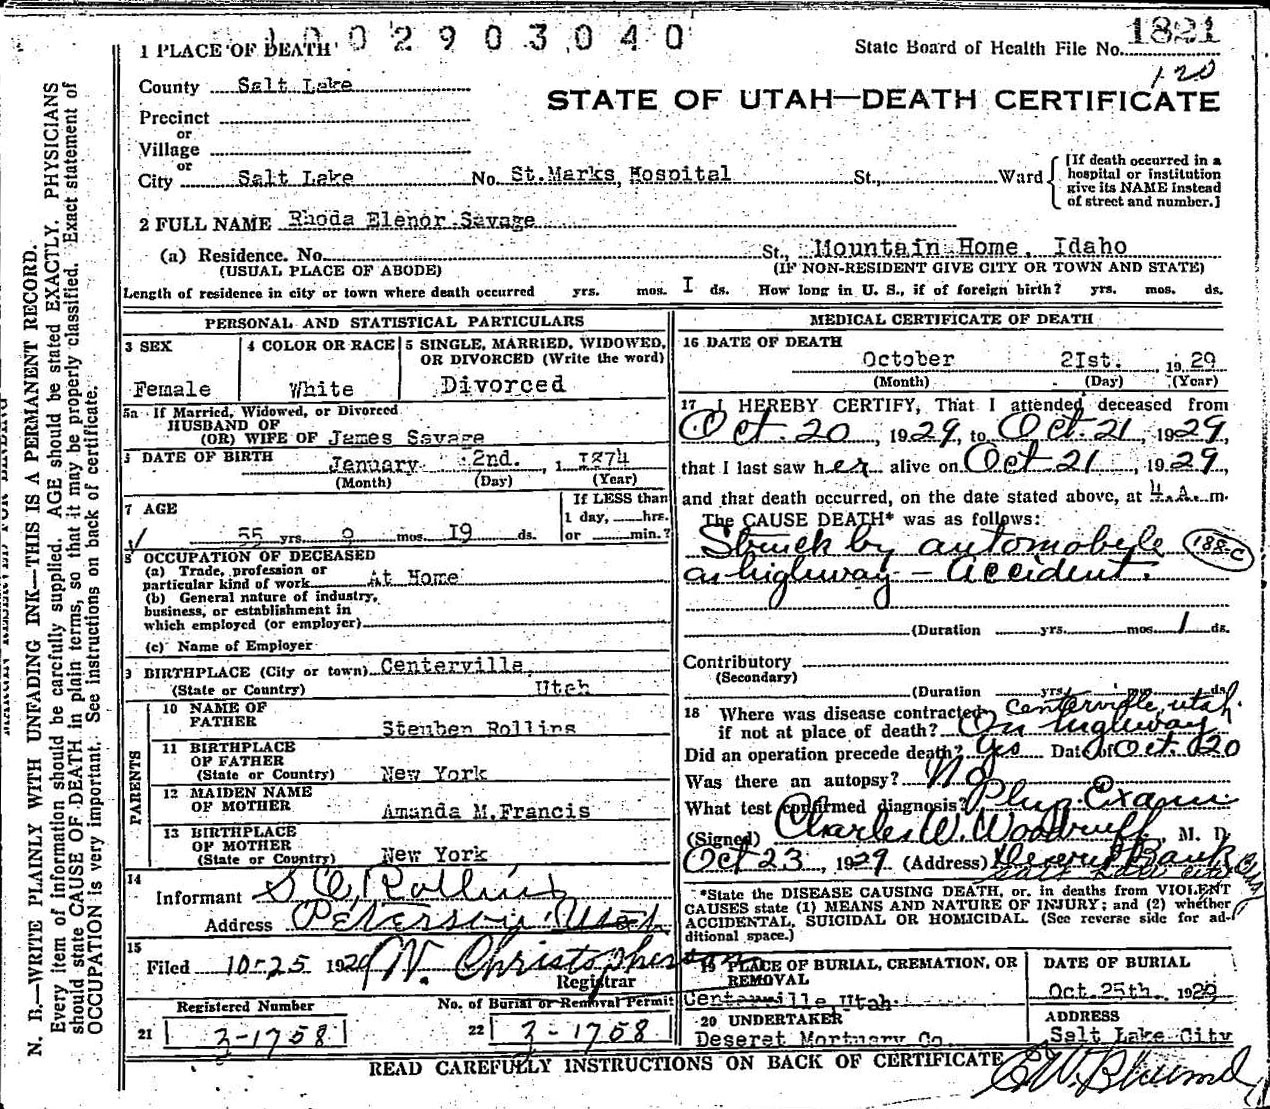 1002903040
1821
1 PLACE OF DEATH
State Board of Health File No.
120
County Salt Lake
STATE OF UTAH—DEATH CERTIFICATE
Precinct
or
Village
or
City Salt Lake No. St.Marks, Hospital St., Ward
[If death occurred in a
hospital or institution
give its NAME instead
of street and number.]
2 FULL NAME Rhoda Elenor Savage
(a) Residence. No. St., Mountain Home, Idaho
(USUAL PLACE OF ABODE) (IF NON-RESIDENT GIVE CITY OR TOWN AND STATE)
Length of residence in city or town where death occurred yrs. mos. I ds. How long in U. S., if of foreign birth? yrs. mos. ds.
PERSONAL AND STATISTICAL PARTICULARS
3 SEX
Female
4 COLOR OR RACE
White
5 SINGLE, MARRIED, WIDOWED,
OR DIVORCED (Write the word)
Divorced
5a If Married, Widowed, or Divorced
HUSBAND OF
(OR) WIFE OF James Savage
DATE OF BIRTH January 2nd. 1 1874
(Month) (Day) (Year)
7 AGE
55 yrs. 9 mos. I9 ds.
If LESS than
1 day, hrs.
or min.?
8 OCCUPATION OF DECEASED
(a) Trade, profession or
particular kind of work At Home
(b) General nature of industry,
business, or establishment in
which employed (or employer)
(c) Name of Employer
9 BIRTHPLACE (City or town) Centerville,
(State or Country) Utah
PARENTS
10 NAME OF
FATHER Steuben Rollins
11 BIRTHPLACE
OF FATHER
(State or Country) New York
12 MAIDEN NAME
OF MOTHER Amanda M.Francis
13 BIRTHPLACE
OF MOTHER
(State or Country) New York
14
Informant Rollins
Address Peterson Utah
15
Filed 10-25 1929 W. Christopherson
Registrar
Registered Number
21 3-1758
No. of Burial or Removal Permit
22 3-1758
MEDICAL CERTIFICATE OF DEATH
16 DATE OF DEATH
October 2Ist. 1929
(Month) (Day) (Year)
17 I HEREBY CERTIFY, That I attended deceased from
Oct. 20, 1929, to Oct. 21, 1929,
that I last saw her alive on Oct 21, 1929,
and that death occurred, on the date stated above, at 4 A. m.
The CAUSE DEATH* was as follows:
Struck by automobile 188-c
on highway — Accident.
(Duration yrs. mos. 1 ds.
Contributory
(Secondary)
(Duration yrs. mos. ds.
18 Where was disease contracted Centerville, Utah.
if not at place of death? On highway
Did an operation precede death? Yes Date of Oct 20
Was there an autopsy? No
What test confirmed diagnosis? Phys. Exam
(Signed) Charles W. Woodruff, M. D.
Oct 23, 1929 (Address) Deseret Bank
Salt Lake City
*State the DISEASE CAUSING DEATH, or, in deaths from VIOLENT
CAUSES state (1) MEANS AND NATURE OF INJURY; and (2) whether
ACCIDENTAL, SUICIDAL OR HOMICIDAL. (See reverse side for ad-
ditional space.)
19 PLACE OF BURIAL, CREMATION, OR
REMOVAL
Centerville, Utah.
DATE OF BURIAL
Oct. 25th. 1929
20 UNDERTAKER
Deseret Mortuary Co.
ADDRESS
Salt Lake City
READ CAREFULLY INSTRUCTIONS ON BACK OF CERTIFICATE
N. B.—WRITE PLAINLY WITH UNFADING INK—THIS IS A PERMANENT RECORD.
Every item of information should be carefully supplied. AGE should be stated EXACTLY. PHYSICIANS
should state CAUSE OF DEATH in plain terms, so that it may be properly classified. Exact statement of
OCCUPATION is very important. See instructions on back of certificate.